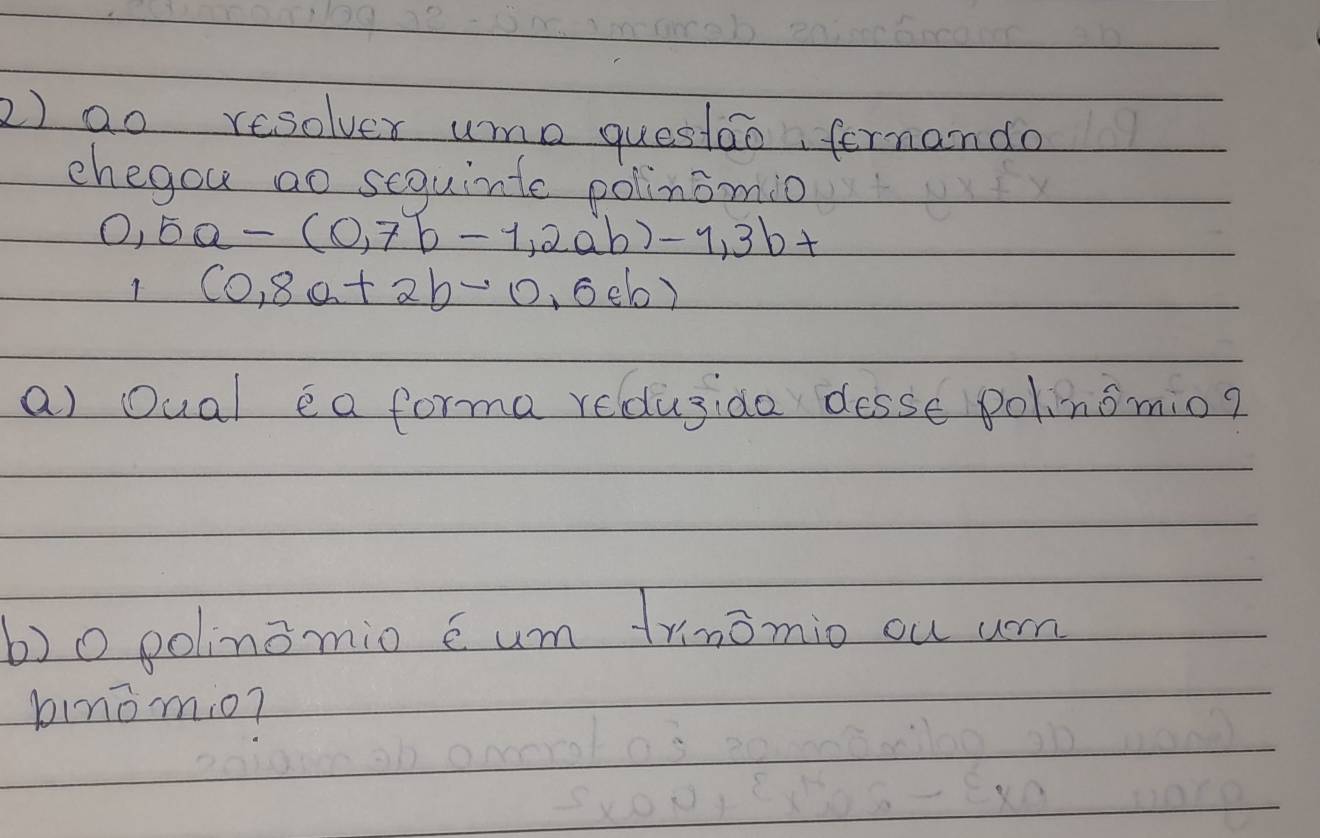 2) ao resolver uma questão, fernando
chegou ao seguinte polinômio
0,5a - (0,7b - 1,2ab) - 1,3b +
(0,8a + 2b - 0,6ab)
a) Qual é a forma reduzida desse polinômio?
b) O polinômio é um trinômio ou um
binômio?